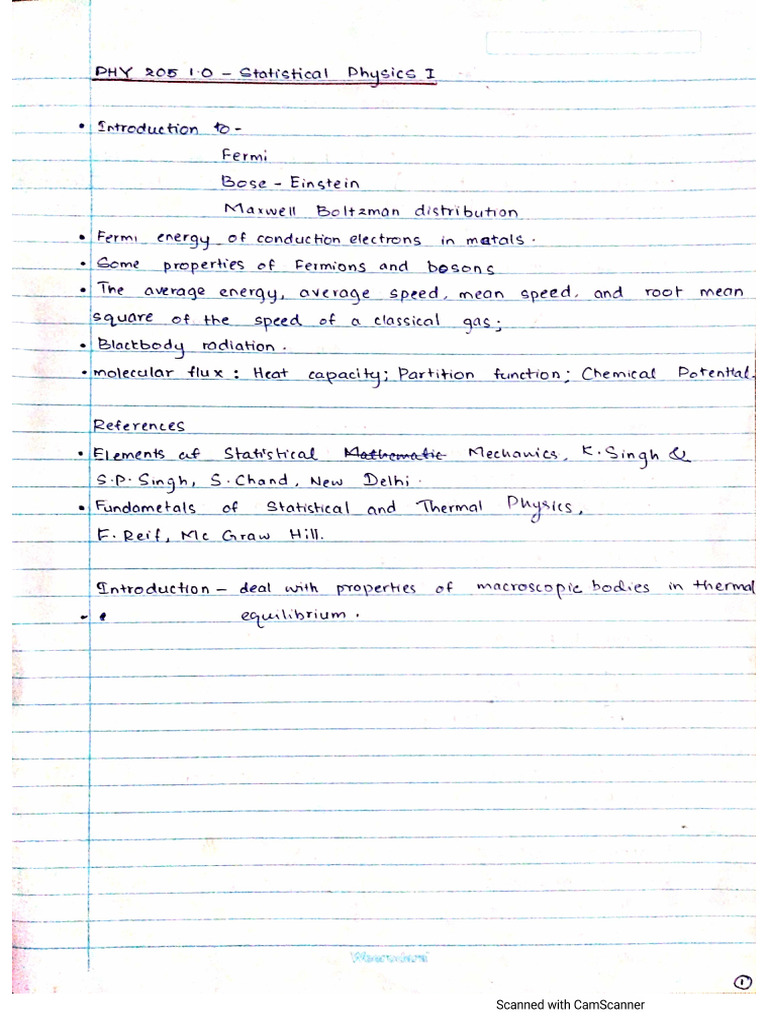 PHY 205 1.0 - Statistical Physics I
• Introduction to -
Fermi
Bose - Einstein
Maxwell Boltzman distribution
• Fermi energy of conduction electrons in metals.
• Some properties of Fermions and bosons
• The average energy, average speed, mean speed, and root mean
square of the speed of a classical gas;
• Blackbody radiation.
• molecular flux : Heat capacity; Partition function; Chemical Potential.
References
• Elements of Statistical Mathematic Mechanics, K. Singh &
S.P. Singh, S. Chand, New Delhi.
• Fundometals of Statistical and Thermal Physics,
F. Reif, Mc Graw Hill.
Introduction - deal with properties of macroscopic bodies in thermal
equilibrium.
1
Scanned with CamScanner